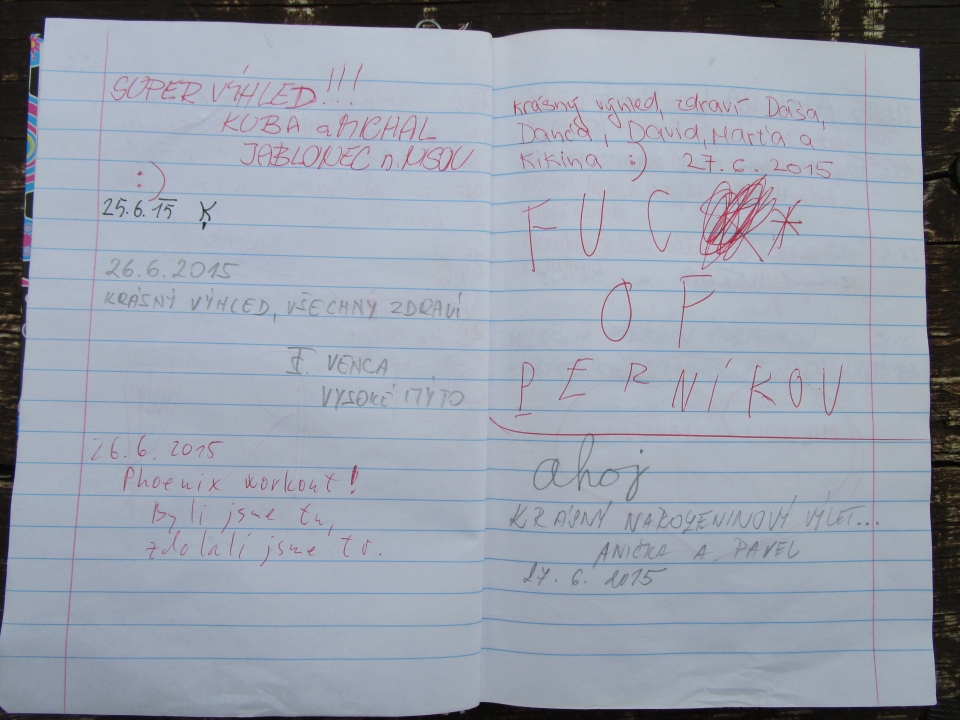 SUPER VÝHLED!!!
KUBA a MICHAL
JABLONEC n. NISOU
:)
25.6.15 K
26.6.2015
KRÁSNÝ VÝHLED, VŠECHNY ZDRAVÍ
VENCA
VYSOKÉ MÝTO
26.6.2015
Phoenix workout!
Byli jsme tu,
zdolali jsme to.
krásný výhled, zdraví Dáša,
Danča, David, Marťa a
Kikina :) 27.6.2015
FUC *
OF
PERNÍKOV
ahoj
KRÁSNÝ NAROZENINOVÝ VÝLET...
ANIČKA A PAVEL
27.6.2015